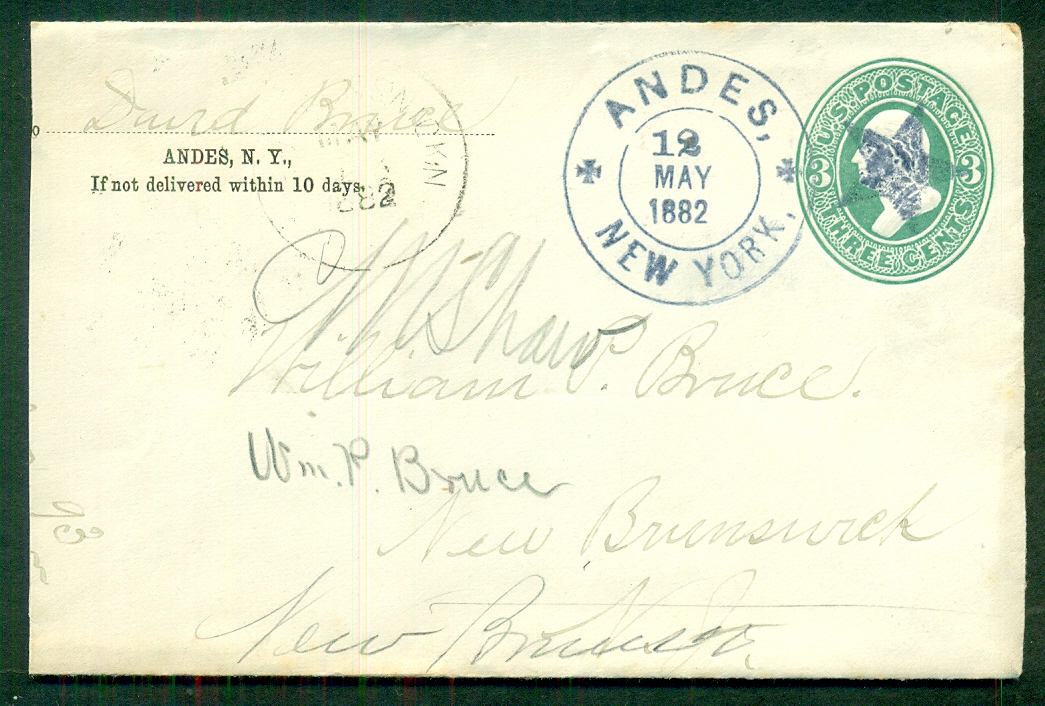 David Bruce
ANDES, N. Y.,
If not delivered within 10 days.
882
ANDES,
12
MAY
1882
NEW YORK.
U.S. POSTAGE
3 3
THREE CENTS
Shaw
William P. Bruce.
Wm. P. Bruce
New Brunswick
N. J.
New